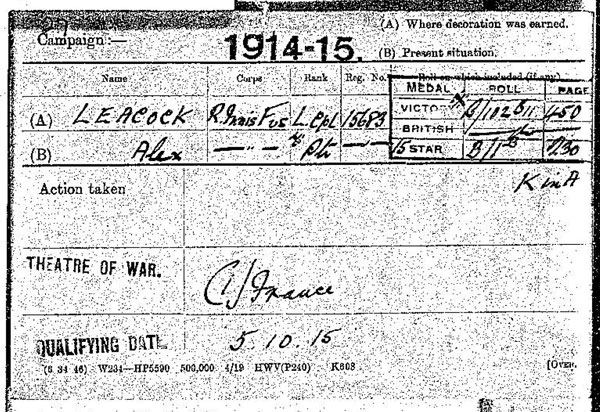 (A) Where decoration was earned.
Campaign:— 1914-15.
(B) Present situation.
Name Corps Rank Reg. No. Roll on which included (if any).
MEDAL ROLL PAGE
(A) LEACOCK R. Innis Fus L. Cpl 15683 VICTORY B/102 B11 450
BRITISH — do —
(B) Alex — " — Pte — " — 15 STAR B/11 B 730
K in A
Action taken
THEATRE OF WAR. (1) France
QUALIFYING DATE 5.10.15
(6 34 46) W234—HP5590 500,000 4/19 HWV(P240) K608
[OVER.